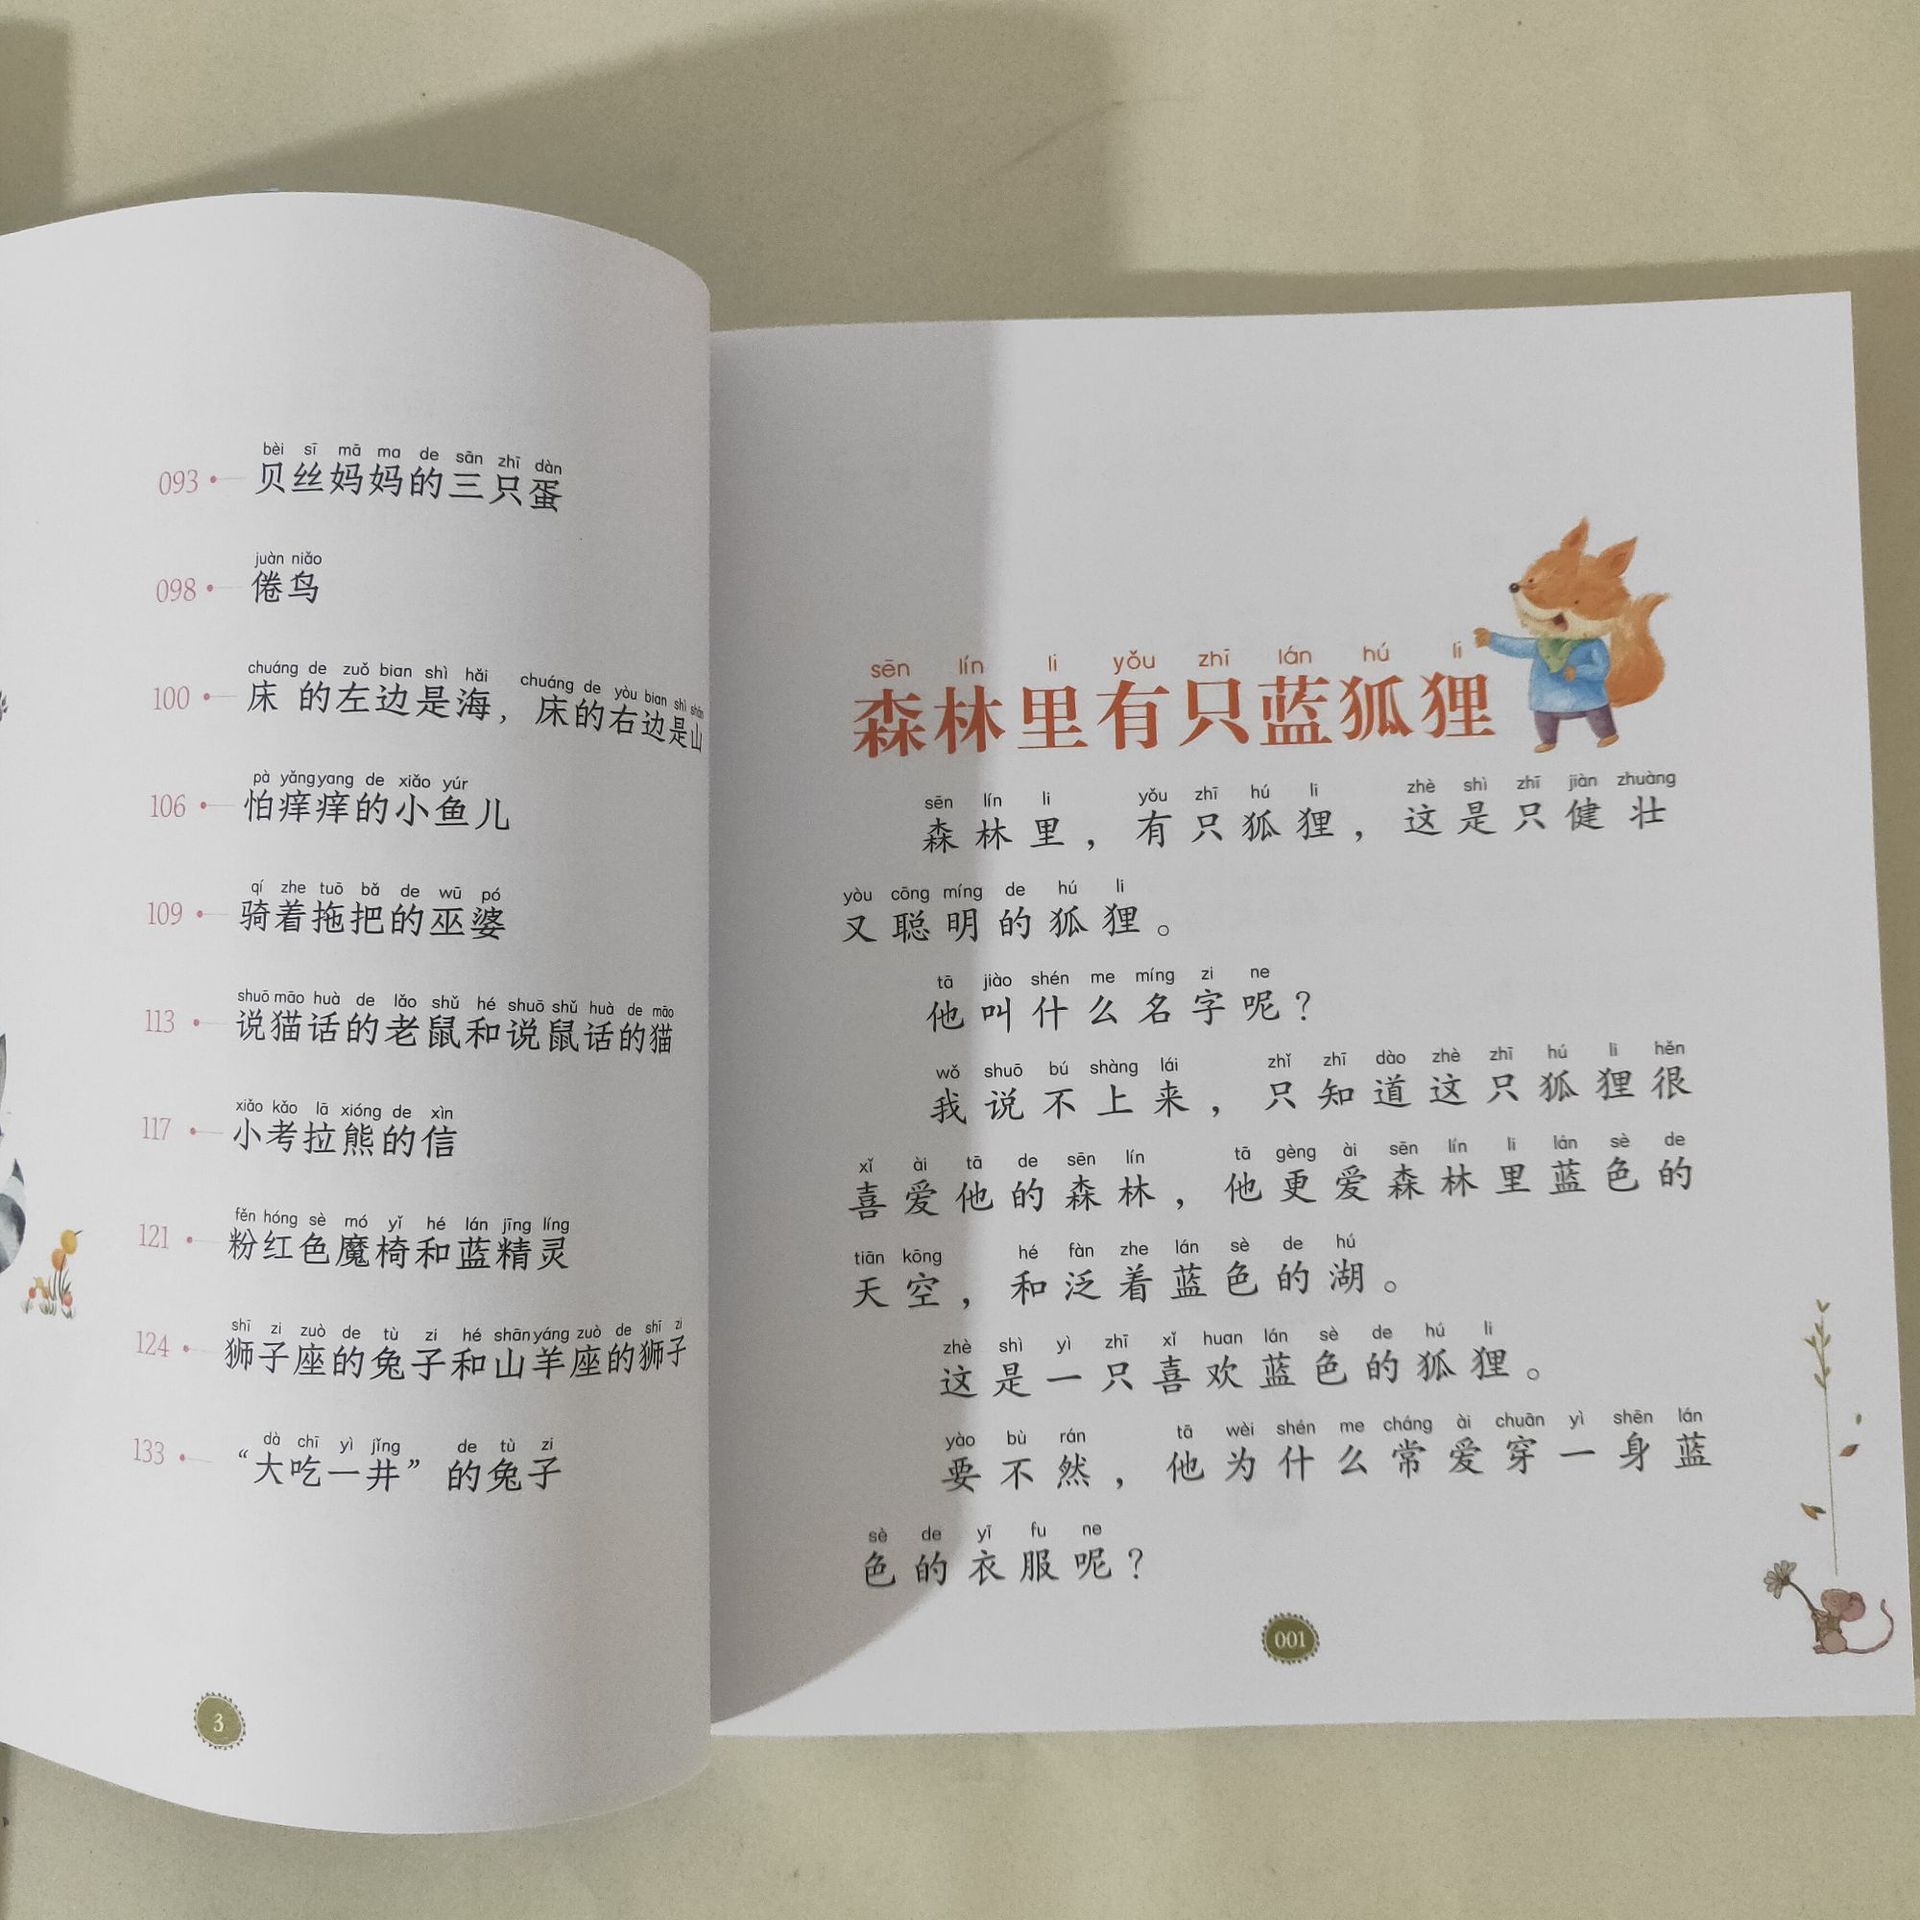 bèi sī mā ma de sān zhī dàn
093 贝丝妈妈的三只蛋
juàn niǎo
098 倦鸟
chuáng de zuǒ bian shì hǎi chuáng de yòu bian shì shān
100 床的左边是海，床的右边是山
pà yǎng yang de xiǎo yúr
106 怕痒痒的小鱼儿
qí zhe tuō bǎ de wū pó
109 骑着拖把的巫婆
shuō māo huà de lǎo shǔ hé shuō shǔ huà de māo
113 说猫话的老鼠和说鼠话的猫
xiǎo kǎo lā xióng de xìn
117 小考拉熊的信
fěn hóng sè mó yǐ hé lán jīng líng
121 粉红色魔椅和蓝精灵
shī zi zuò de tù zi hé shān yáng zuò de shī zi
124 狮子座的兔子和山羊座的狮子
dà chī yì jǐng de tù zi
133 “大吃一井”的兔子
3
sēn lín li yǒu zhī lán hú li
森林里有只蓝狐狸
sēn lín li yǒu zhī hú li zhè shì zhī jiàn zhuàng
森林里，有只狐狸，这是只健壮
yòu cōng míng de hú li
又聪明的狐狸。
tā jiào shén me míng zi ne
他叫什么名字呢？
wǒ shuō bú shàng lái zhǐ zhī dào zhè zhī hú li hěn
我说不上来，只知道这只狐狸很
xǐ ài tā de sēn lín tā gèng ài sēn lín li lán sè de
喜爱他的森林，他更爱森林里蓝色的
tiān kōng hé fàn zhe lán sè de hú
天空，和泛着蓝色的湖。
zhè shì yì zhī xǐ huan lán sè de hú li
这是一只喜欢蓝色的狐狸。
yào bù rán tā wèi shén me cháng ài chuān yì shēn lán
要不然，他为什么常爱穿一身蓝
sè de yī fu ne
色的衣服呢？
001